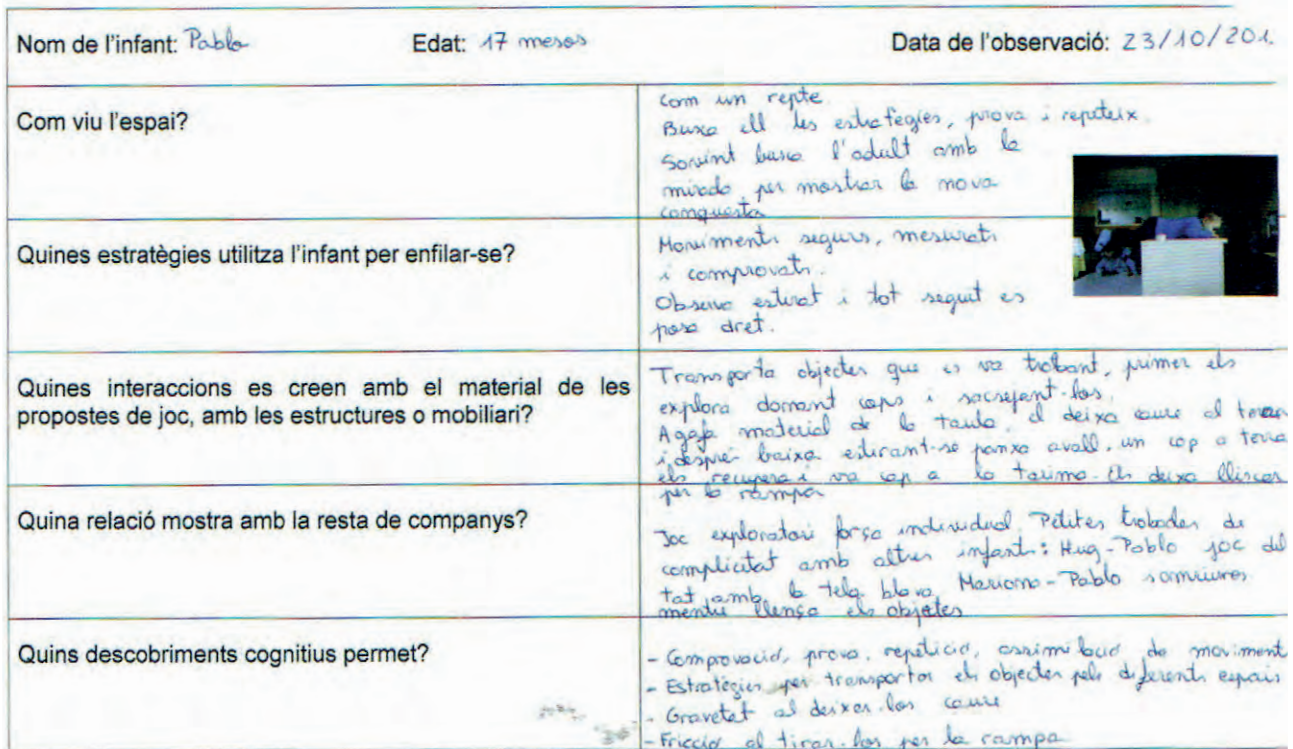 Nom de l'infant: Pablo Edat: 17 mesos Data de l'observació: 23/10/201
Com viu l'espai?
Com un repte.
Busca ell les estrategies, prova i repeteix.
Sonrint busca l'adult amb la
mirada per mostrar la nova
conquesta
Quines estratègies utilitza l'infant per enfilar-se?
Moviments segurs, mesurats
i comprovats.
Observa estirat i tot seguit es
posa dret.
Quines interaccions es creen amb el material de les
propostes de joc, amb les estructures o mobiliari?
Transporta objectes que es va trobant, primer els
explora donant cops i sacsejant-los.
Agafa material de la taula, el deixa caure al terra
i després baixa estirant-se panxa avall, un cop a terra
els recupera i va cap a la tarima. Els deixa lliscar
per la rampa
Quina relació mostra amb la resta de companys?
Joc exploratori força individual. Petites trobades de
complicitat amb altres infants: Hug-Pablo joc del
tat amb la tela blava. Mariona-Pablo somriures
mentre llença els objectes
Quins descobriments cognitius permet?
- Comprovació, prova, repetició, assimilació de moviment
- Estratègies per transportar els objectes pels diferents espais
- Gravetat al deixar-los caure
- Fricció al tirar-los per la rampa